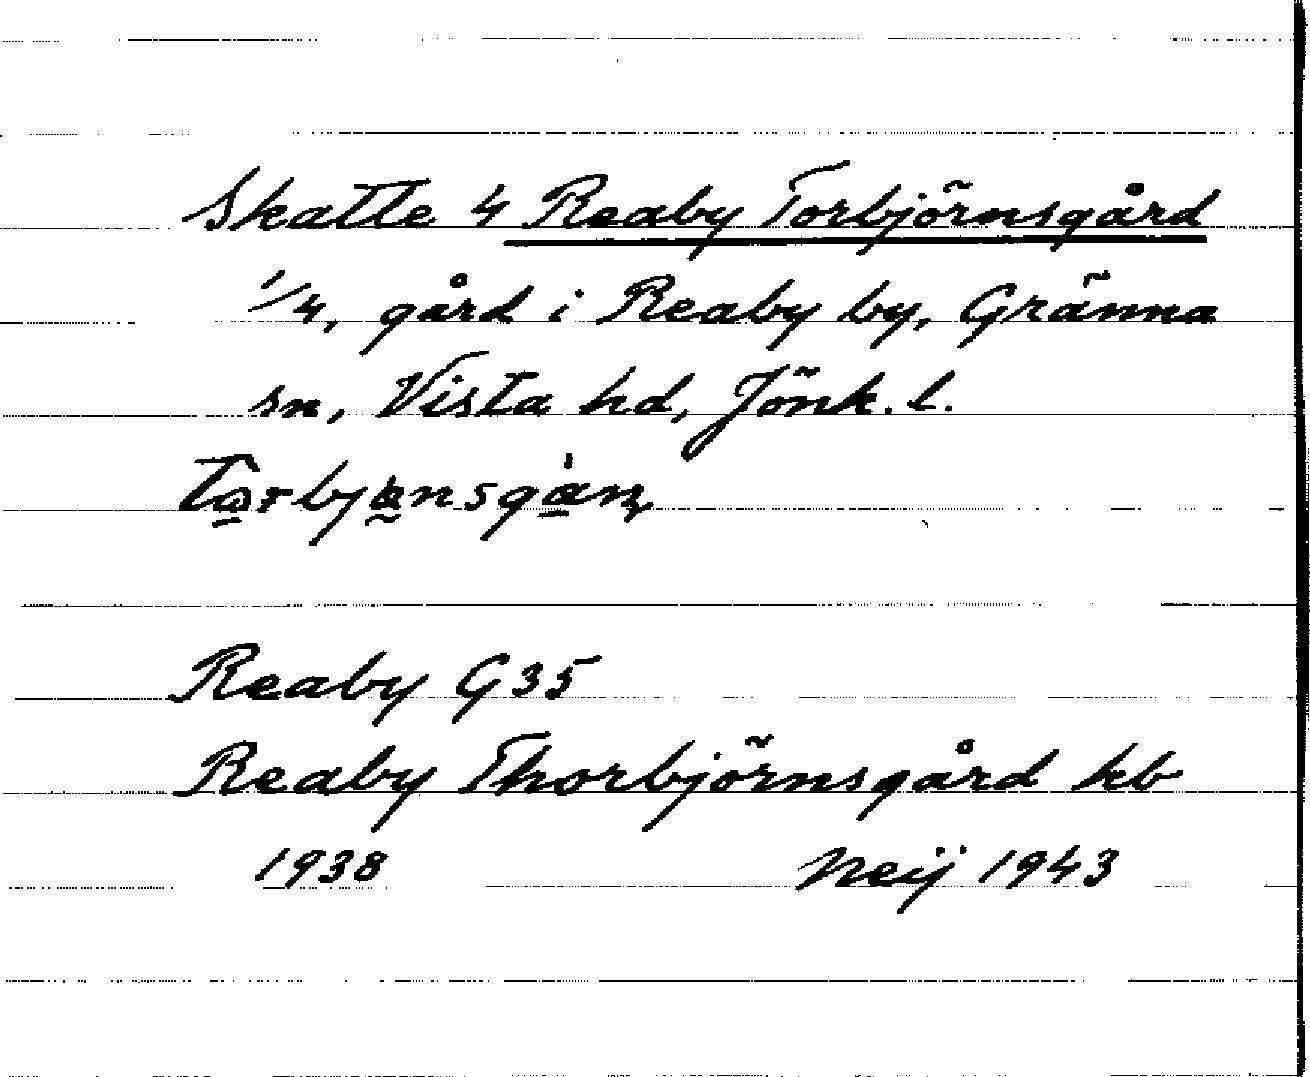 Skatte 4 Reaby Torbjörnsgård
1/4, gård i Reaby by, Gränna
sn, Vista hd, Jönk. l.
Reaby G35
Reaby Thorbjörnsgård kb
1938 Neij 1943